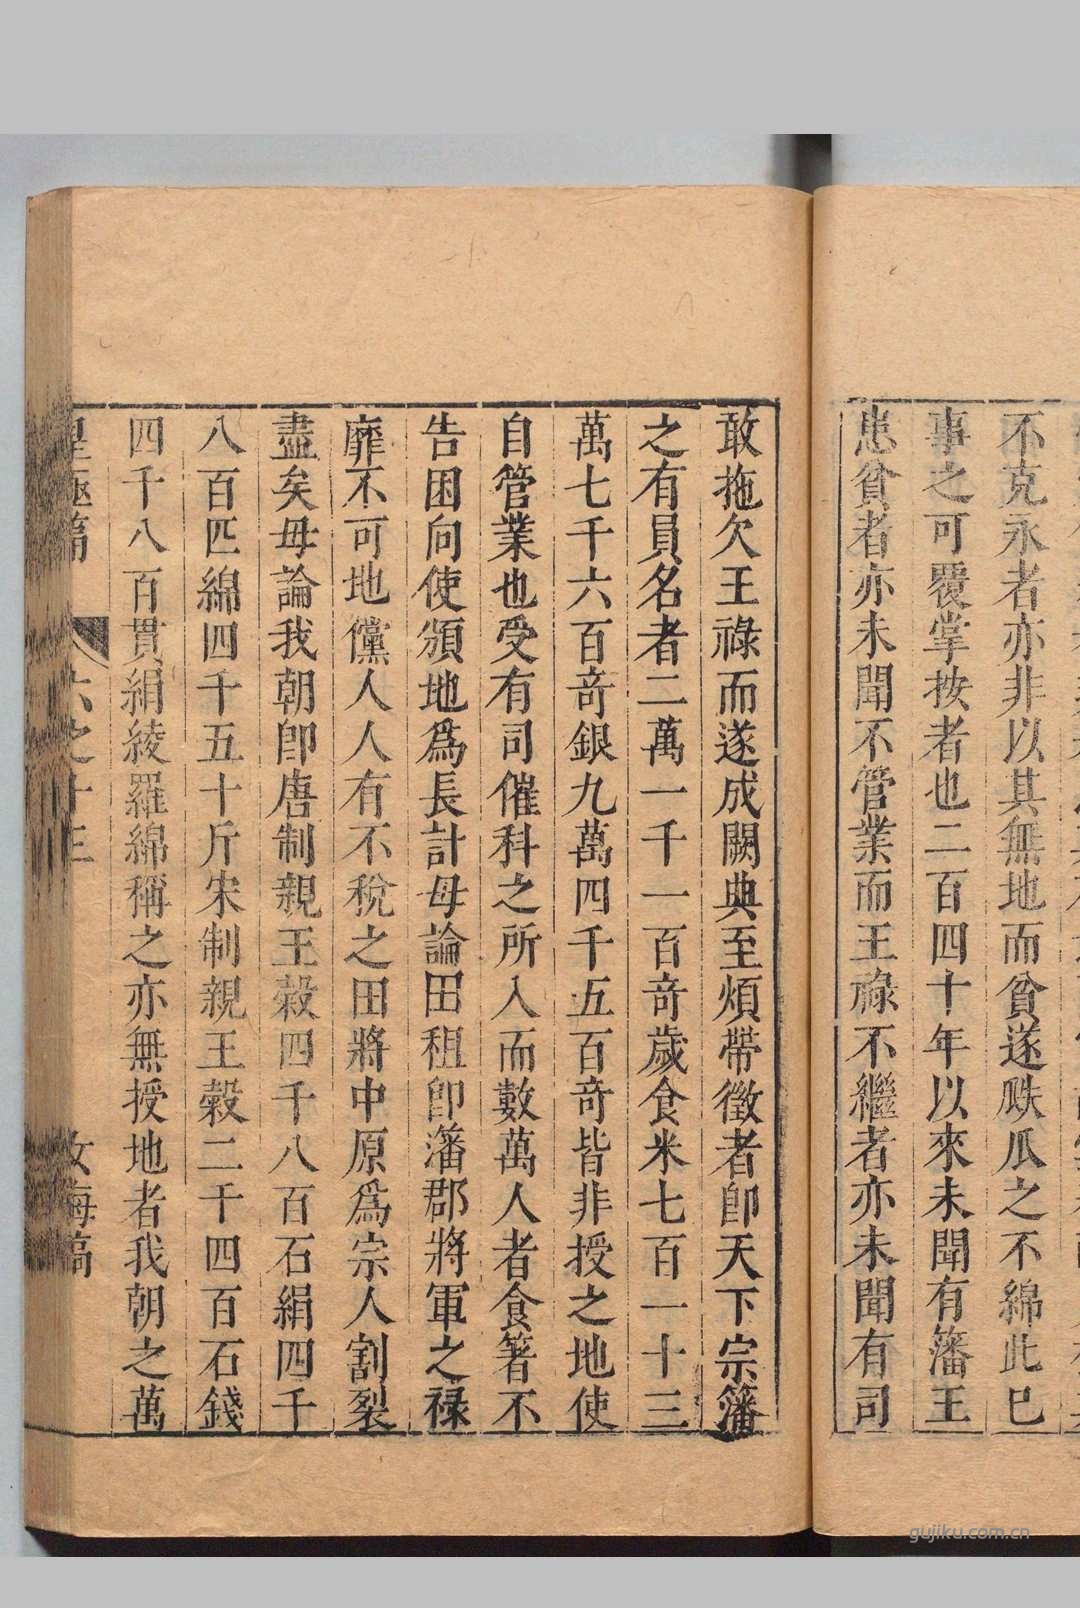 不克永者亦非以其無地而貧遂瓞瓜之不綿此已
事之可覆掌按者也二百四十年以來未聞有藩王
患貧者亦未聞不管業而王祿不繼者亦未聞有司
敢拖欠王祿而遂成闕典至煩帶徵者卽天下宗藩
之有員名者二萬一千一百奇歲食米七百一十三
萬七千六百奇銀九萬四千五百奇皆非授之地使
自管業也受有司催科之所入而數萬人者食箸不
告困向使頒地爲長計毋論田租卽藩郡將軍之祿
靡不可地儻人人有不稅之田將中原爲宗人割裂
盡矣毋論我朝卽唐制親王穀四千八百石絹四千
八百匹綿四千五十斤宋制親王穀二千四百石錢
四千八百貫絹綾羅綿稱之亦無授地者我朝之萬
皇極篇
六之十三
文海篇
gujiku.com.cn